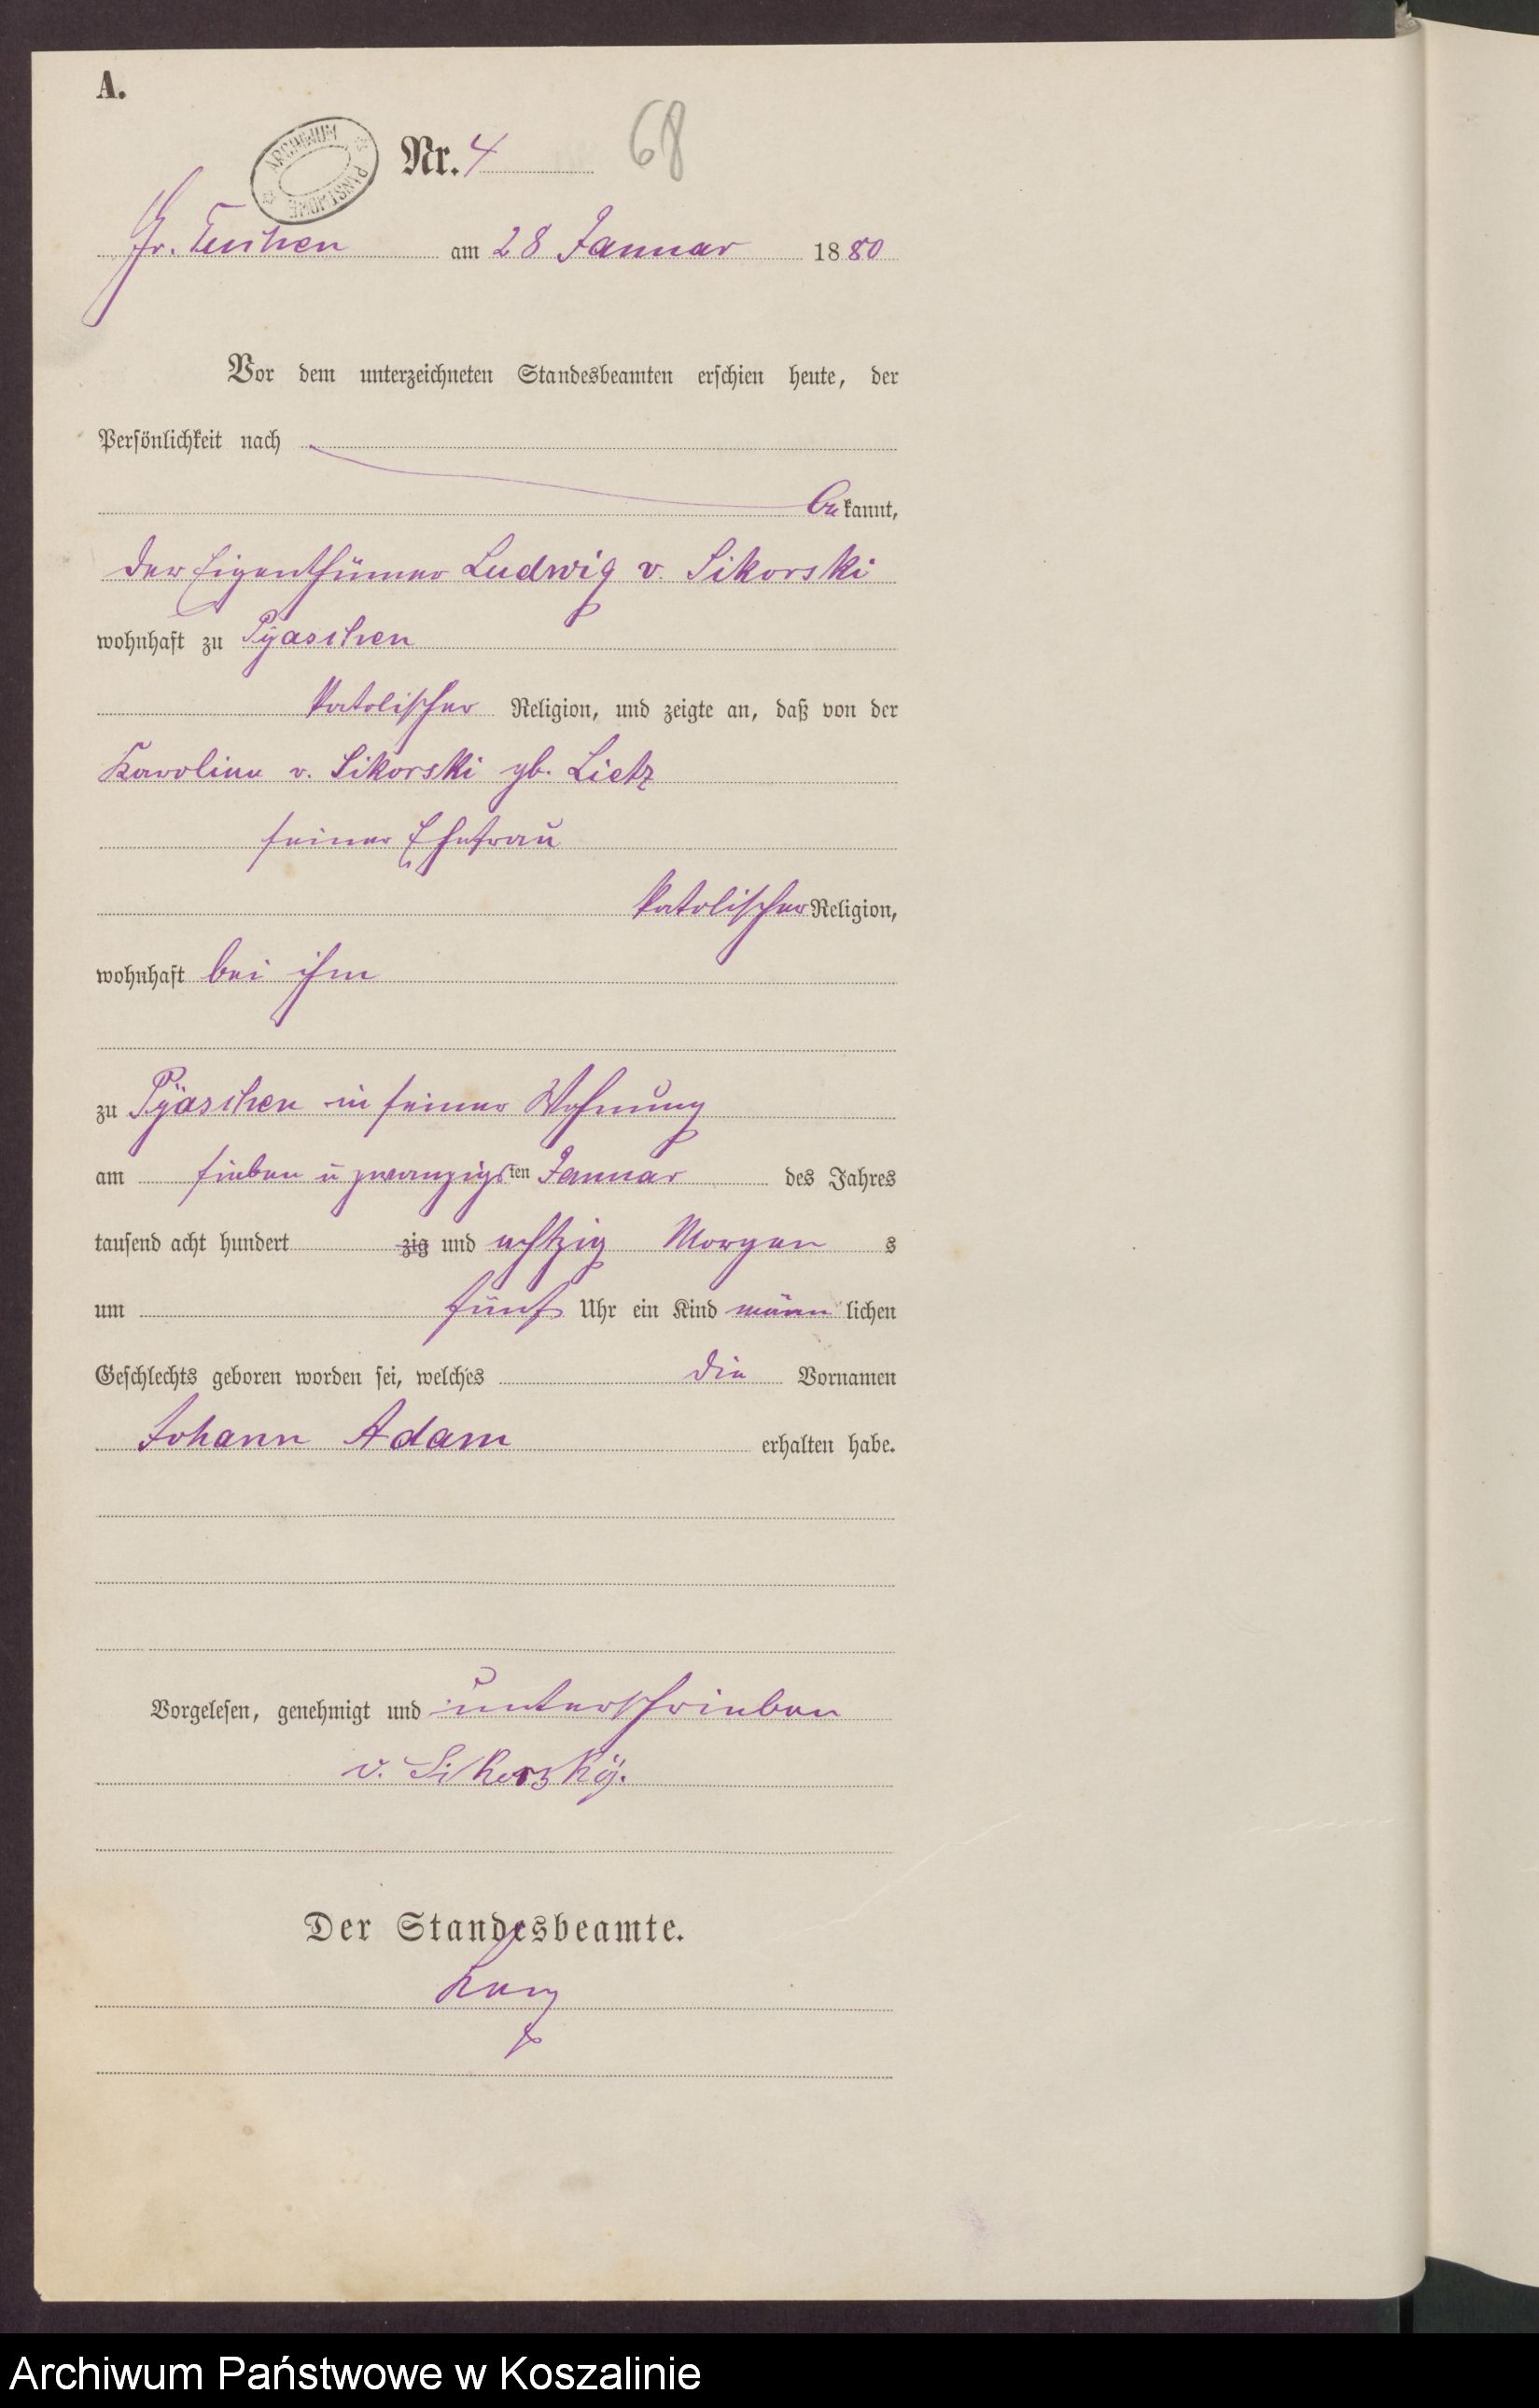 A.
ARCHIWUM PAŃSTWOWE
Nr. 4
68
Gr. Tuchen am 28 Januar 1880
Vor dem unterzeichneten Standesbeamten erschien heute, der
Persönlichkeit nach
bekannt,
der Eigenthümer Ludwig v. Sikorski
wohnhaft zu Pyaschen
katolischer Religion, und zeigte an, daß von der
Karoline v. Sikorski gb. Lietz
seiner Ehefrau
katolischer Religion,
wohnhaft bei ihm
zu Pyaschen in seiner Wohnung
am sieben u zwanzigsten Januar des Jahres
tausend acht hundert zig und achtzig Morgens
um fünf Uhr ein Kind männlichen
Geschlechts geboren worden sei, welches die Vornamen
Johann Adam erhalten habe.
Vorgelesen, genehmigt und unterschrieben
v. Sikorsky.
Der Standesbeamte.
Archiwum Państwowe w Koszalinie